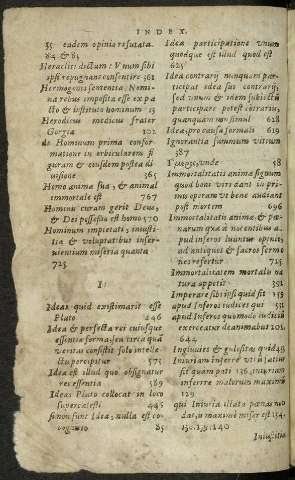 INDEX.
35 eadem opinio refutata.
84 & 85
Heracliti dictum: Vnum sibi
ipsi repugnans consentire 361
Hermogenis sententia, Nomi-
na rebus imposita esse ex pa-
cto & instituto hominum
Herodicus medicus frater
Gorgiæ 102
de Hominum prima confor-
matione in orbicularem fi-
guram & eiusdem postea di-
uisione 365
Homo anima sua, & animal
immortale est 767
Hominū curam gerit Deus,
& Dei possessio est homo 570
Hominum impietati, iniusti-
tiæ & voluptatibus inser-
uientium miseria quanta
723
I.
Ideas quid existimarit esse
Plato 246
Idea & perfecta rei cuiusque
essentia forma, seu vera quæ-
veritas consistit solo intelle-
ctu percipitur
Idea est illud quo obsignatur
rei essentia 589
Ideas Plato collocat in loco
supercœlesti 445
si non sunt Ideæ, nulla est co-
gnitio 85
Idea participatione vnum
quodque est illud quod est
625
Idea contrarij nunquam par-
ticipat idea sui contrarij,
sed vnum & idem subiectū
participare potest contrarijs,
quamquam non simul 628
Ideæ pro causa formali 619
Ignorantia summum vitium
387
58
Immortalitatis anima signum
quod boni viri dant in pri-
mis operam vt bene audiant
post mortem 696
Immortalitatis animæ & pœ-
narum quæ à nocentibus a-
pud inferos luuntur opinio,
ad antiquos & sacros sermo-
nes refertur 715
Immortalitatem mortalis na-
tura appetit 391
Imperare sibi ipsi quid sit 135
apud Inferos iudices qui 351
apud Inferos quomodo iudiciū
exerceatur de animabus 201,
644
Ingluuies & ebrietas quid 493
Iniuriam inferre vtrū satius
sit quam pati 136, iniuriam
inferre malorum maximū
129
qui Iniuria illata pœnas non
dat, is maximè miser est 134,
139, 140
Iniustitia